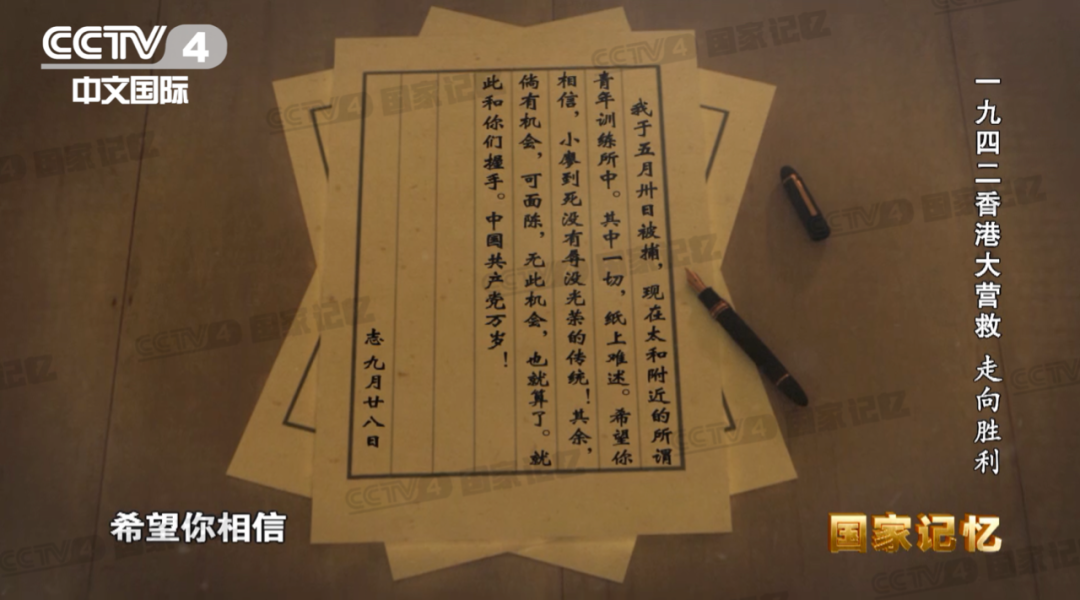 CCTV 4
中文国际
我于五月卅日被捕，现在太和附近的所谓
青年训练所中。其中一切，纸上难述。希望你
相信，小廖到死没有辱没光荣的传统！其余，
倘有机会，可面陈，无此机会，也就算了。就
此和你们握手。中国共产党万岁！
志 九月廿八日
一九四二香港大营救 走向胜利
希望你相信
国家记忆